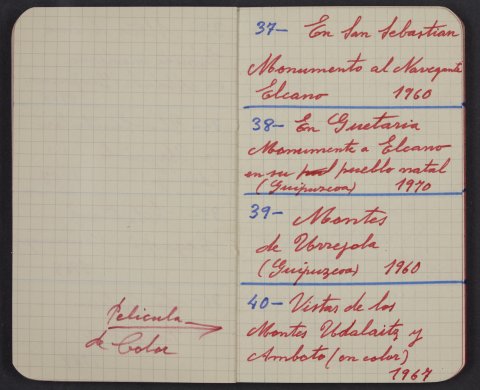 Pelicula
de Color
37- En San Sebastian
Monumento al Navegante
Elcano 1960
38- En Guetaria
Monumento a Elcano
en su pueblo natal
(Guipuzcoa) 1970
39- Montes
de Urrejola
(Guipuzcoa) 1960
40- Vistas de los
Montes Udalaitz y
Amboto (en color)
1967